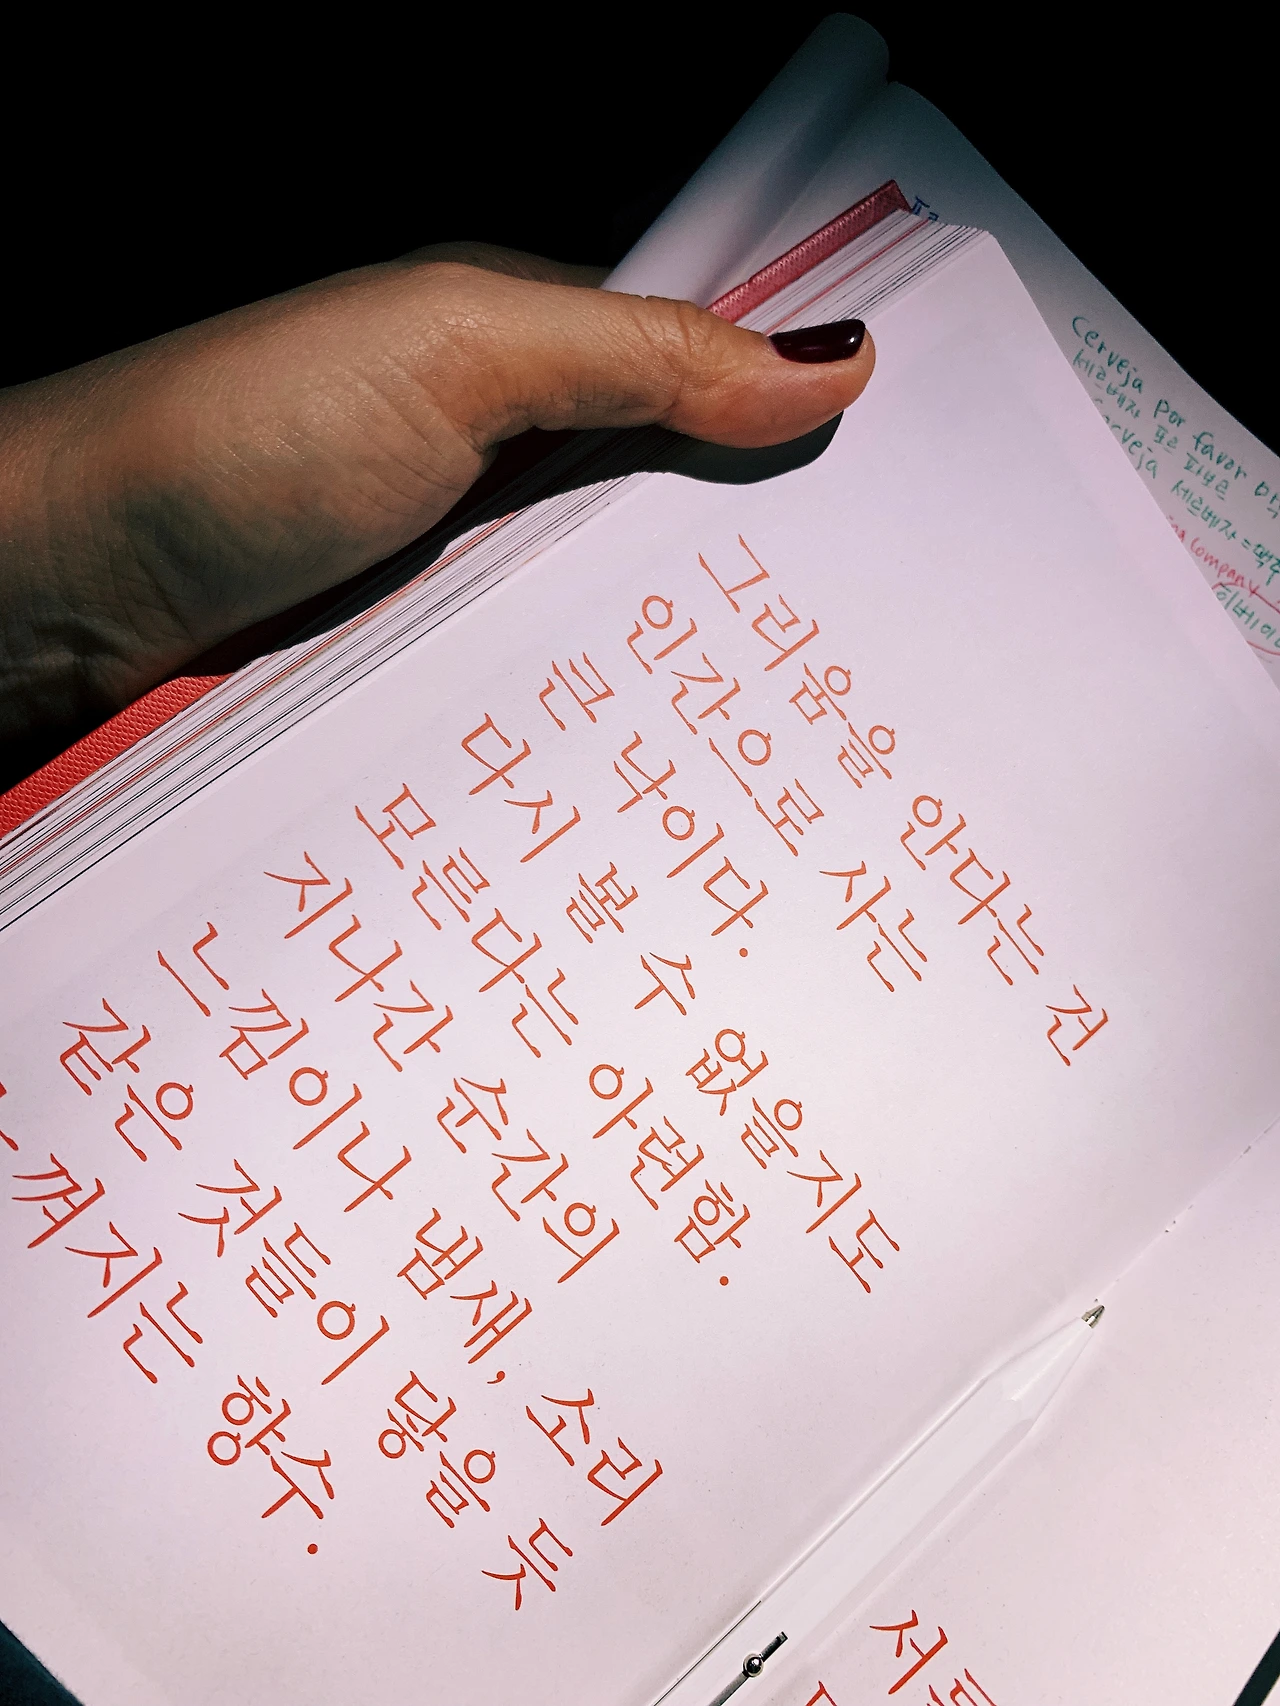 그리움을 안다는 건
인간으로 사는
큰 낙이다.
다시 볼 수 없을지도
모른다는 아련함.
지나간 순간의
느낌이나 냄새, 소리
같은 것들이 닿을 듯
느껴지는 향수.
서로
Cerveja por favor
세르베자 포르 파보르
Cerveja 세르베자=맥주
Company